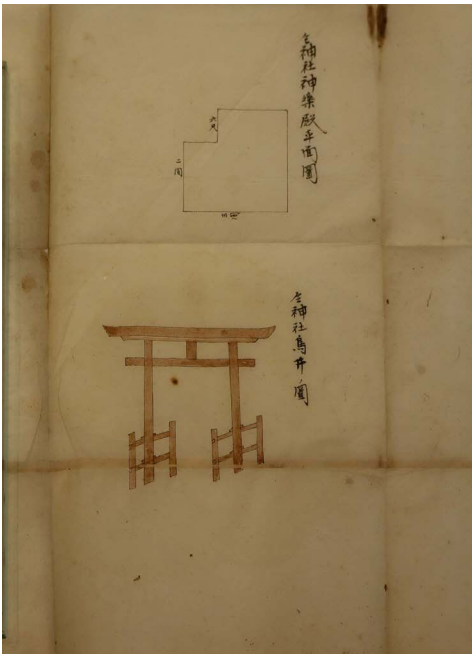 仝神社神楽殿平面圖
六尺
二間
三間
仝神社鳥井圖